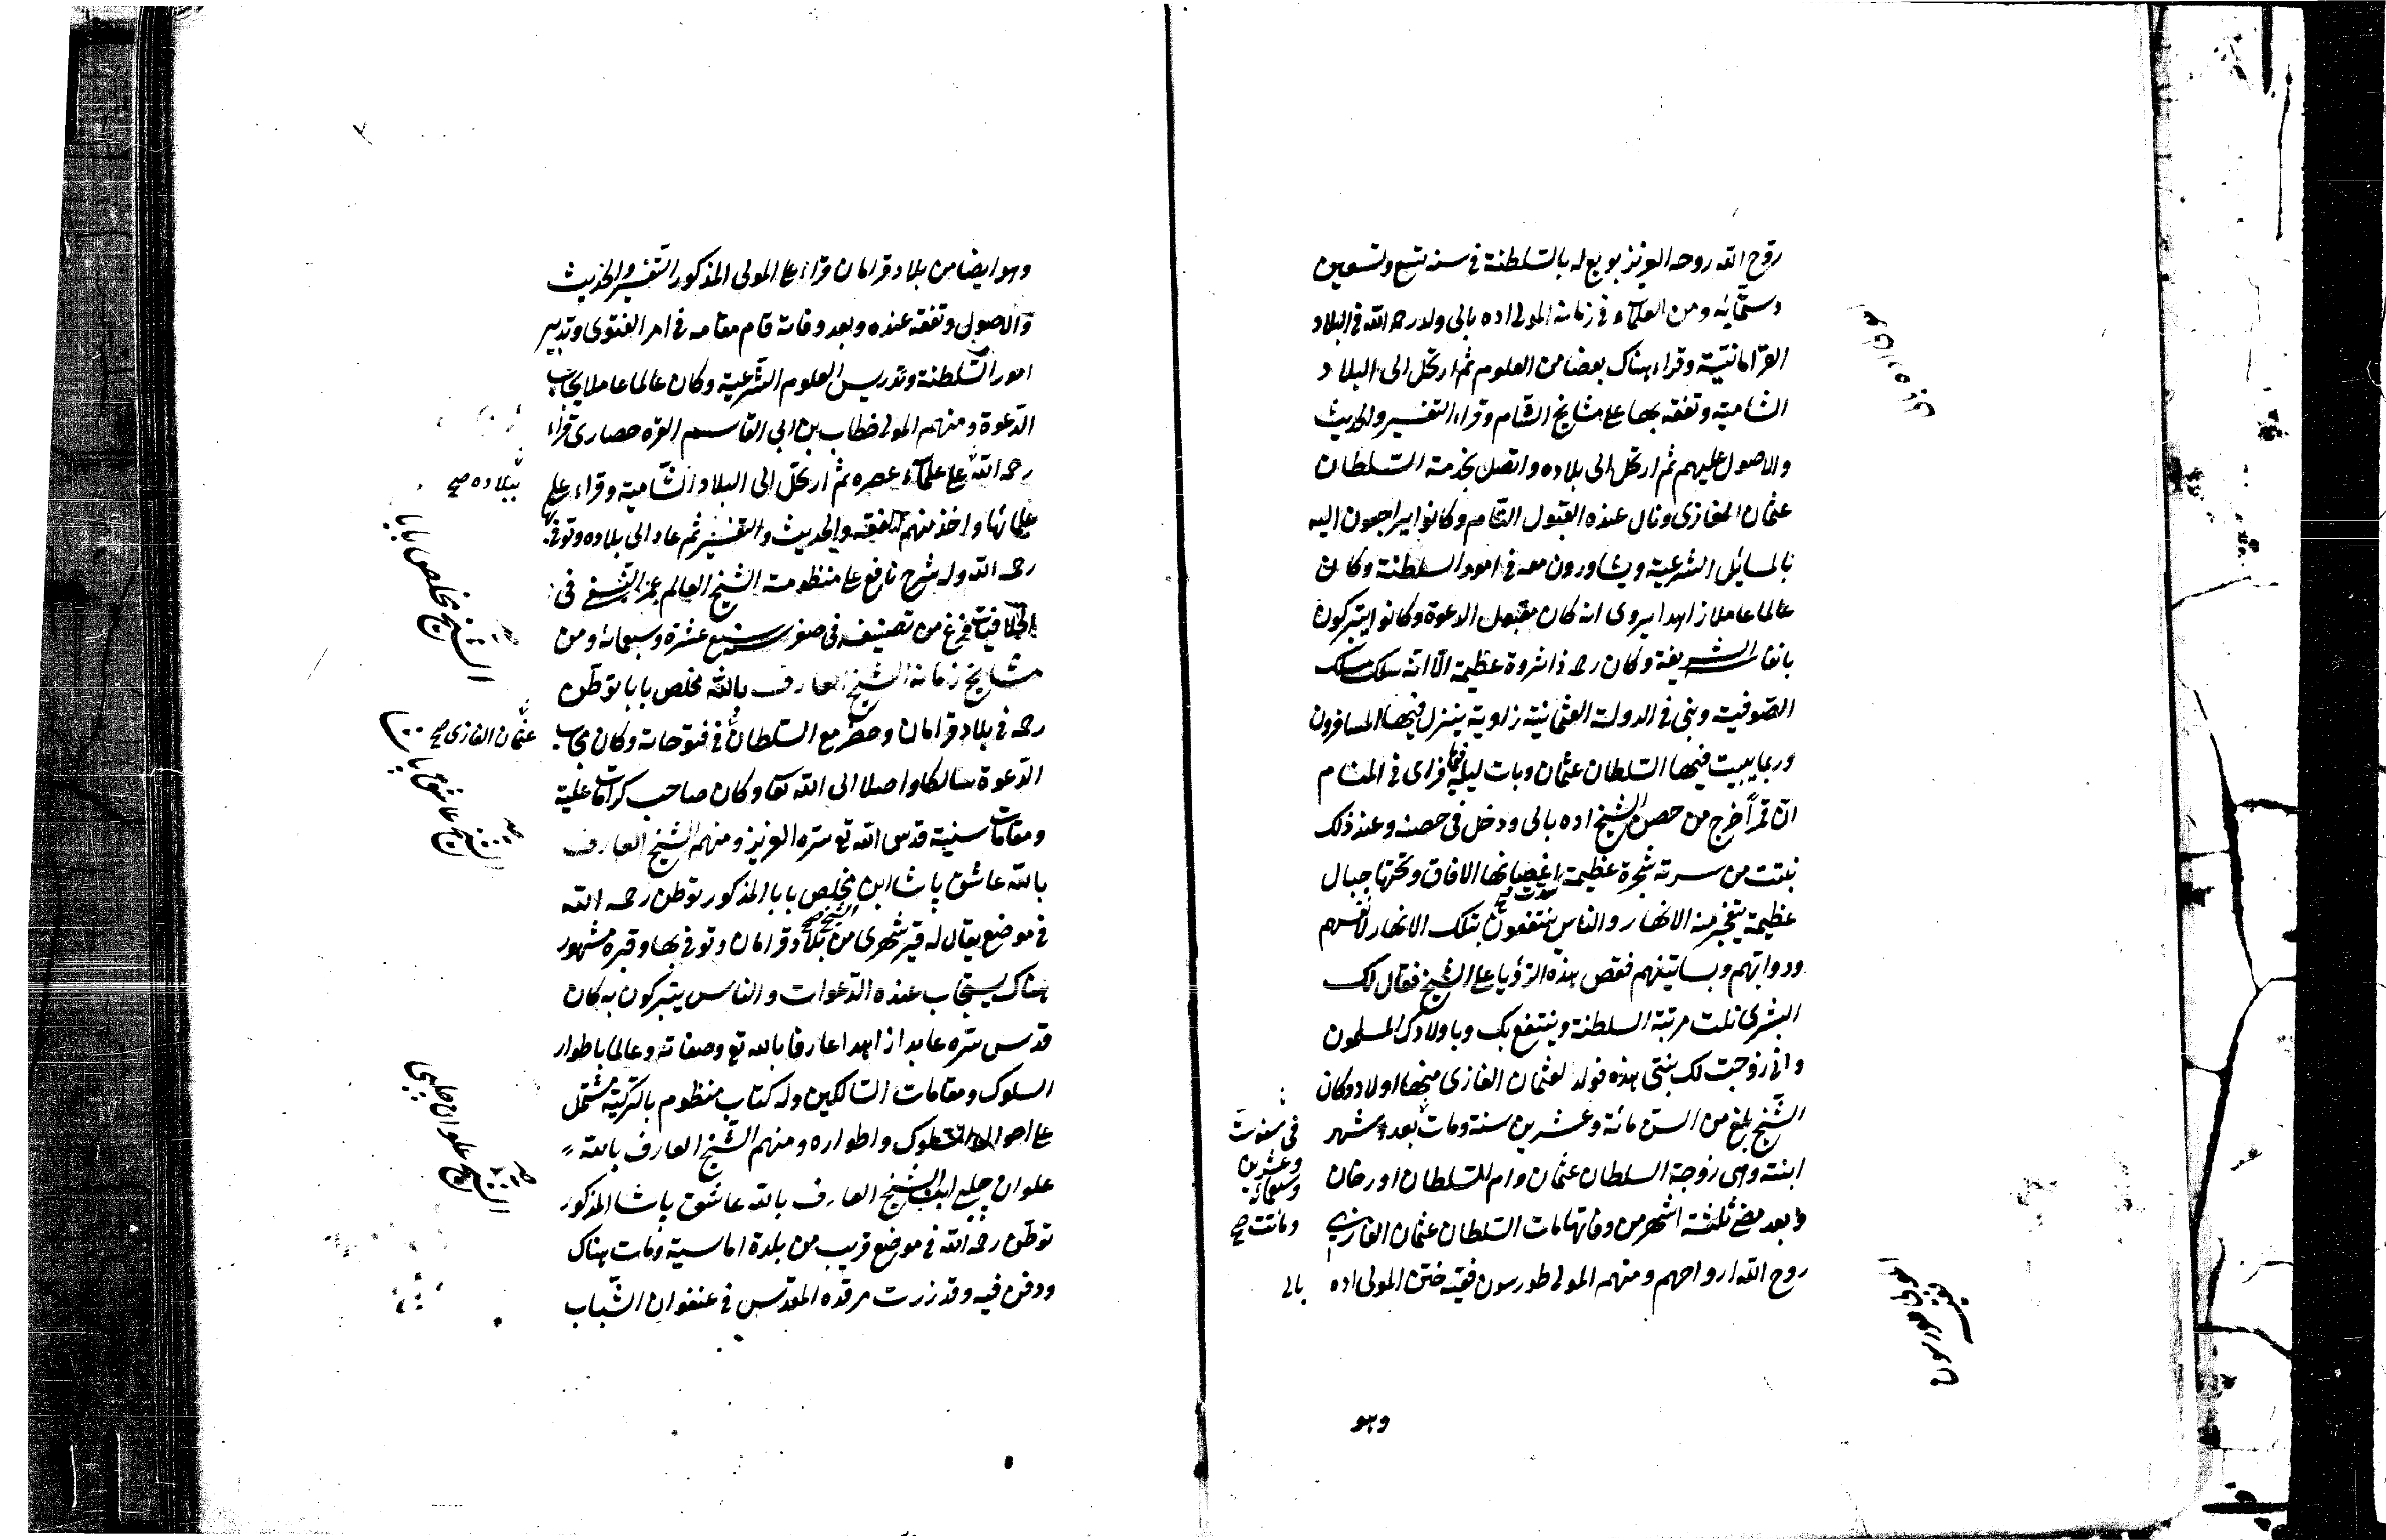 روح الله روحه العزيز بويع له بالسلطنة فى سنه تسع وتسعين
وستمايه ومن العلماء فى زمانه المولى اده بالى ولد رحمه الله فى البلاد
القرامانية وقراء هناك بعضا من العلوم ثم ارتحل الى البلاد
الشامية وتفقه بها على مشايخ الشام وقراء التفسير والحديث
والاصول عليهم ثم ارتحل الى بلاده واتصل بخدمة السلطان
عثمان الغازى ونال عنده القبول التام وكانوا يراجعون اليه
بالمسائل الشرعية ويشاورون معه فى امور السلطنة وكان
عالما عاملا زاهدا يروى انه كان مقبول الدعوة وكانوا يتبركون
بانفاسه الشريفة وكان رحمه ذا ثروة عظيمة الا انه سلك مسلك
الصوفية وبنى فى الدولة العثمانية زاوية ينزل فيها المسافرون
وربما يبيت فيها السلطان عثمان وبات ليلة فيها فراى فى المنام
ان قمرا خرج من حصن الشيخ اده بالى ودخل فى حصنه وعند ذلك
نبتت من سرته شجرة عظيمة سدت اغصانها الافاق وتحتها جبال
عظيمة يتفجر منه الانهار والناس ينتفعون بتلك الانهار لانفسهم
ودوابهم وبساتينهم فقص هذه الرؤيا على الشيخ فقال لك
البشرى نلت مرتبة السلطنة وينتفع بك وباولادك المسلمون
وانى زوجت لك بنتى هذه فولد لعثمان الغازى منها اولاد وكان
الشيخ بلغ من السن مائة وعشرين سنة ومات بعد شهر
فى سنه ست
وعشرين
وسبعمائه
وماتت صح
ابنته وهى زوجة السلطان عثمان وام السلطان اورخان
وبعد مضى ثلثة اشهر من وفاتها مات السلطان عثمان الغازى
روح الله ارواحهم ومنهم المولى طورسون فقيه ختن المولى اده بالى
وهو
وهو ايضا من بلاد قرامان قراء على المولى المذكور التفسير والحديث
والاصول وتفقه عنده وبعد وفاته قام مقامه فى امر الفتوى وتدبير
امور السلطنة وتدريس العلوم الشرعية وكان عالما عاملا مجاب
الدعوة ومنهم المولى خطاب بن ابى القاسم القره حصارى قراء
رحمه الله على علماء عصره ثم ارتحل الى البلاد الشامية وقراء على
ببلاده صح
علمائها واخذ منهم الفقه والحديث والتفسير ثم عاد الى بلاده وتوفى بها
رحمه الله وله شرح نافع على منظومة الشيخ العالم عمر النسفى فى
الخلافيات فرغ من تصنيفه فى صفر سنه سبع عشرة وسبعمائه ومن
الشيخ مخلص بابا
مشايخ زمانه الشيخ العارف بالله مخلص بابا توطن
رحمه فى بلاد قرامان وحضر مع السلطان فى فتوحاته وكان مجاب
عثمان الغازى صح
الدعوة سالكا واصلا الى الله تعا وكان صاحب كرامات علية
ومقامات سنية قدس الله تع سره العزيز ومنهم الشيخ العارف
الشيخ عاشق پاشا
بالله عاشق پاشا ابن الشيخ مخلص بابا المذكور توطن رحمه الله
فى موضع يقال له قير شهرى من بلاد قرامان وتوفى بها وقبره مشهور
هناك يستجاب عنده الدعوات والناس يتبركون به كان
قدس سره عابدا زاهدا عارفا بالله تع وصفاته وعالما باطوار
السلوك ومقامات السالكين وله كتاب منظوم بالتركية مشتمل
على احوال السلوك واطواره ومنهم الشيخ العارف بالله
الشيخ علوان چلبى
علوان چلبى ابن الشيخ العارف بالله عاشق پاشا المذكور
توطن رحمه الله فى موضع قريب من بلدة اماسية ومات هناك
ودفن فيه وقد زرت مرقده المقدس فى عنفوان الشباب